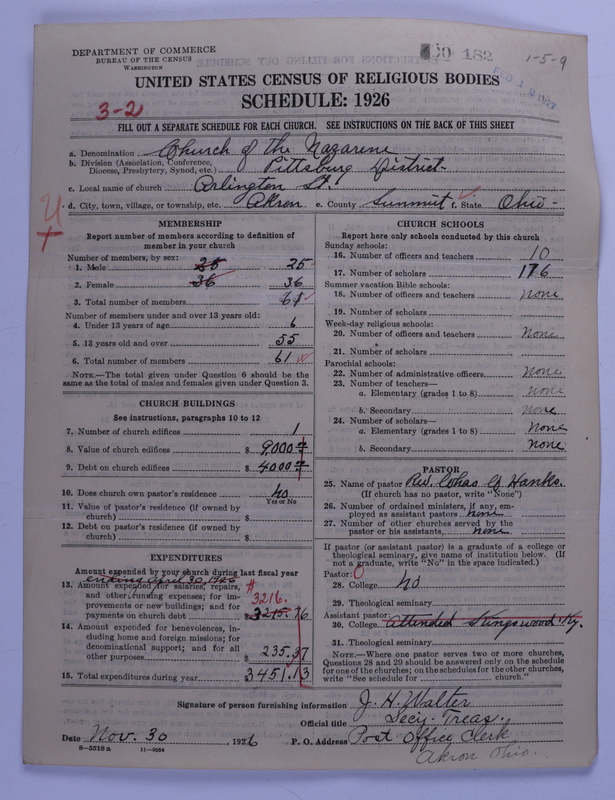 DEPARTMENT OF COMMERCE
BUREAU OF THE CENSUS
WASHINGTON
182
1-5-9
UNITED STATES CENSUS OF RELIGIOUS BODIES
SCHEDULE: 1926
3-2
FILL OUT A SEPARATE SCHEDULE FOR EACH CHURCH. SEE INSTRUCTIONS ON THE BACK OF THIS SHEET
a. Denomination Church of the Nazarene
b. Division (Association, Conference, Diocese, Presbytery, Synod, etc.) Pittsburg District
c. Local name of church Arlington St.
d. City, town, village, or township, etc. Akron e. County Summit f. State Ohio
MEMBERSHIP
Report number of members according to definition of
member in your church
Number of members, by sex:
1. Male 25 25
2. Female 36 36
3. Total number of members 61
Number of members under and over 13 years old:
4. Under 13 years of age 6
5. 13 years old and over 55
6. Total number of members 61
NOTE.—The total given under Question 6 should be the
same as the total of males and females given under Question 3.
CHURCH BUILDINGS
See instructions, paragraphs 10 to 12
7. Number of church edifices 1
8. Value of church edifices $ 9000 00
9. Debt on church edifices $ 4000 00
10. Does church own pastor's residence no
Yes or No
11. Value of pastor's residence (if owned by
church) $
12. Debt on pastor's residence (if owned by
church) $
EXPENDITURES
Amount expended by your church during last fiscal year
ending April 30, 1926
13. Amount expended for salaries, repairs,
and other running expenses; for im-
provements or new buildings; and for
payments on church debt $ 3215.76
$ 3216.
14. Amount expended for benevolences, in-
cluding home and foreign missions; for
denominational support; and for all
other purposes $ 235.37
15. Total expenditures during year $ 3451.13
CHURCH SCHOOLS
Report here only schools conducted by this church
Sunday schools:
16. Number of officers and teachers 10
17. Number of scholars 176
Summer vacation Bible schools:
18. Number of officers and teachers none
19. Number of scholars
Week-day religious schools:
20. Number of officers and teachers none
21. Number of scholars
Parochial schools:
22. Number of administrative officers none
23. Number of teachers—
a. Elementary (grades 1 to 8) none
b. Secondary none
24. Number of scholars—
a. Elementary (grades 1 to 8) none
b. Secondary none
PASTOR
25. Name of pastor Rev. Chas Hanks.
(If church has no pastor, write "None")
26. Number of ordained ministers, if any, em-
ployed as assistant pastors none
27. Number of other churches served by the
pastor or his assistants, none
If pastor (or assistant pastor) is a graduate of a college or
theological seminary, give name of institution below. (If
not a graduate, write "No" in the space indicated.)
Pastor: O
28. College no
29. Theological seminary
Assistant pastor:
30. College attended Kingswood Ky.
31. Theological seminary
NOTE.—Where one pastor serves two or more churches,
Questions 28 and 29 should be answered only on the schedule
for one of the churches; on the schedules for the other churches,
write "See schedule for church."
Signature of person furnishing information J. H. Walter
Official title Secy. Treas.
Date Nov. 30 1926 P. O. Address Post Office Clerk
Akron Ohio.
8-5518a 11-4064